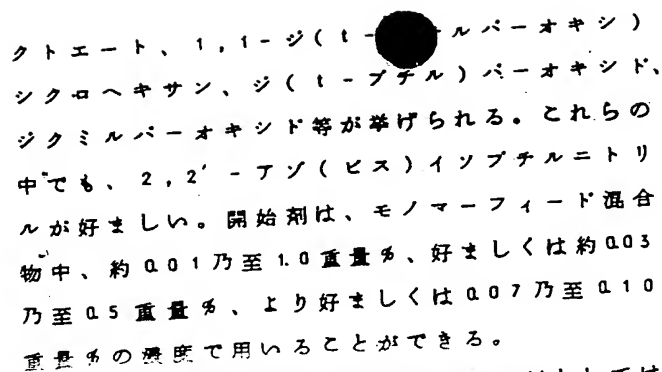 クトエート、1,1-ジ(t-ルパーオキシ)
シクロヘキサン、ジ(t-ブチル)パーオキシド、
ジクミルパーオキシド等が挙げられる。これらの
中でも、2,2'-アゾ(ビス)イソブチルニトリ
ルが好ましい。開始剤は、モノマーフィード混合
物中、約0.01乃至1.0重量%、好ましくは約0.03
乃至0.5重量%、より好ましくは0.07乃至0.10
重量%の濃度で用いることができる。